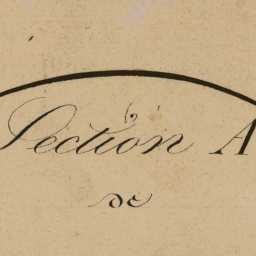 Section A
de